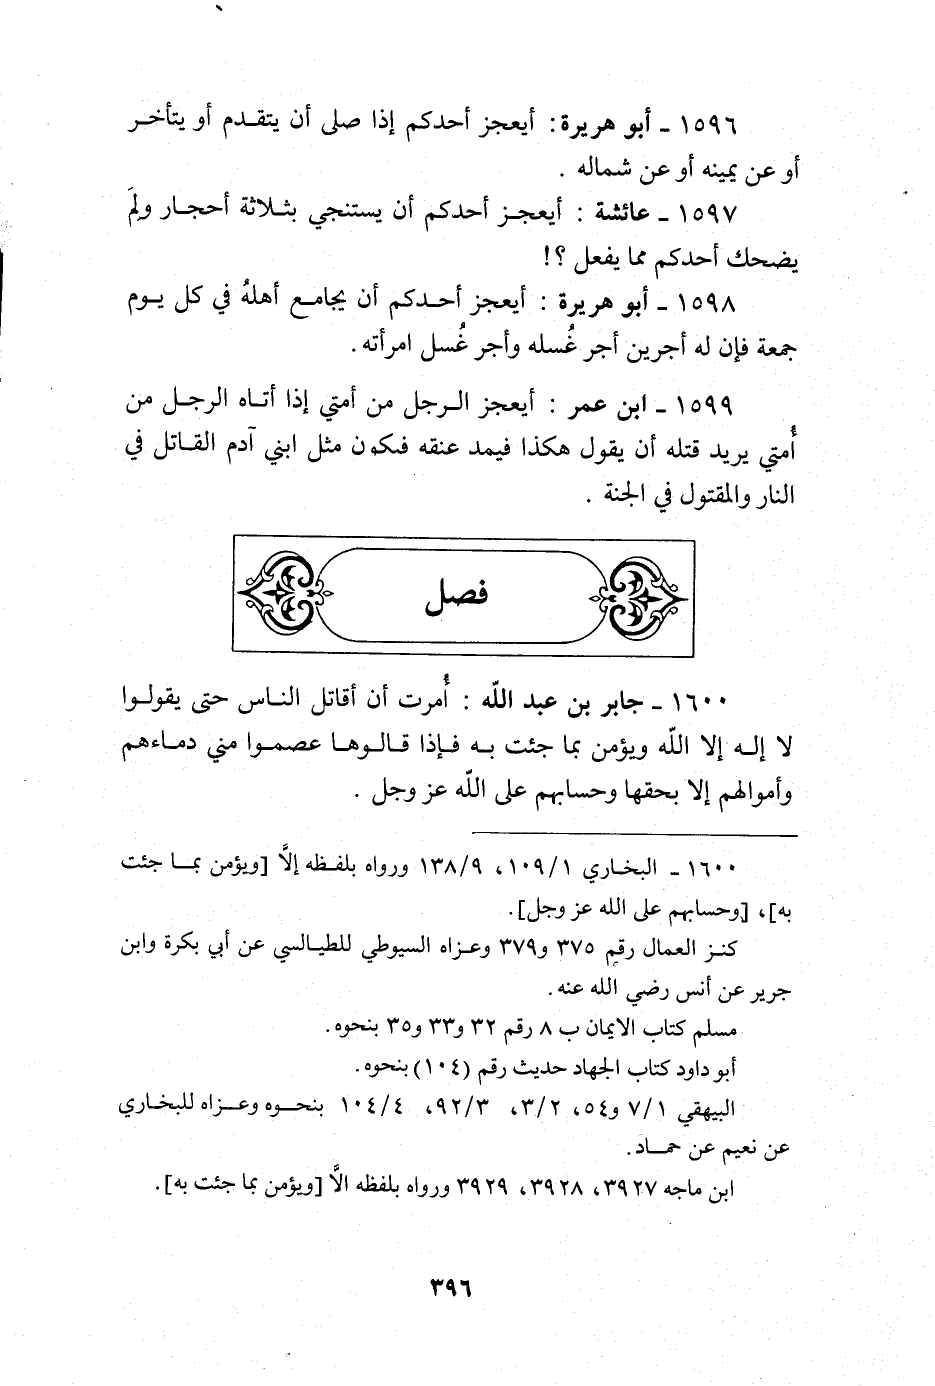 ١٥٩٦ ـ أبو هريرة: أيعجز أحدكم إذا صلى أن يتقـدم أو يتأخـر
أو عن يمينه أو عن شماله .
١٥٩٧ ـ عائشة : أيعجـز أحدكم أن يستنجي بثـلاثة أحجـار ولِمَ
يضحك أحدكم مما يفعل ؟!
١٥٩٨ ـ أبو هريرة : أيعجز أحـدكم أن يجامـع أهلهُ في كل يـوم
جمعة فإن له أجرين أجر غُسله وأجر غُسل امرأته.
١٥٩٩ ـ ابن عمر : أيعجز الـرجل من أمتي إذا أتـاه الرجـل من
أُمتي يريد قتله أن يقول هكذا فيمد عنقه فيكون مثل ابني آدم القـاتل في
النار والمقتول في الجنة .
فصل
١٦٠٠ ـ جابر بن عبد اللّه : أُمرت أن أقاتل النـاس حتى يقولـوا
لا إلـه إلا اللّه ويؤمن بما جئت بـه فـإذا قـالـوهـا عصمـوا مني دمـاءهم
وأموالهم إلا بحقها وحسابهم على اللّه عز وجل .
١٦٠٠ ـ البخـاري ١/ ١٠٩، ٩/ ١٣٨ ورواه بلفـظه إلاَّ [ويؤمن بمـا جئت
به]، [وحسابهم على الله عز وجل].
كنـز العمال رقم ٣٧٥ و٣٧٩ وعـزاه السيوطي للطيـالسي عن أبي بكرة وابن
جرير عن أنس رضي الله عنه.
مسلم كتاب الايمان ب ٨ رقم ٣٢ و٣٣ و٣٥ بنحوه.
أبو داود كتاب الجهاد حديث رقم (١٠٤) بنحوه.
البيهقي ١/ ٧ و٥٤، ٢/ ٣، ٣/ ٩٢، ٤/ ١٠٤ بنحـوه وعـزاه للبخـاري
عن نعيم عن حمـاد.
ابن ماجه ٣٩٢٧، ٣٩٢٨، ٣٩٢٩ ورواه بلفظه الاَّ [ويؤمن بما جئت به].
٣٩٦